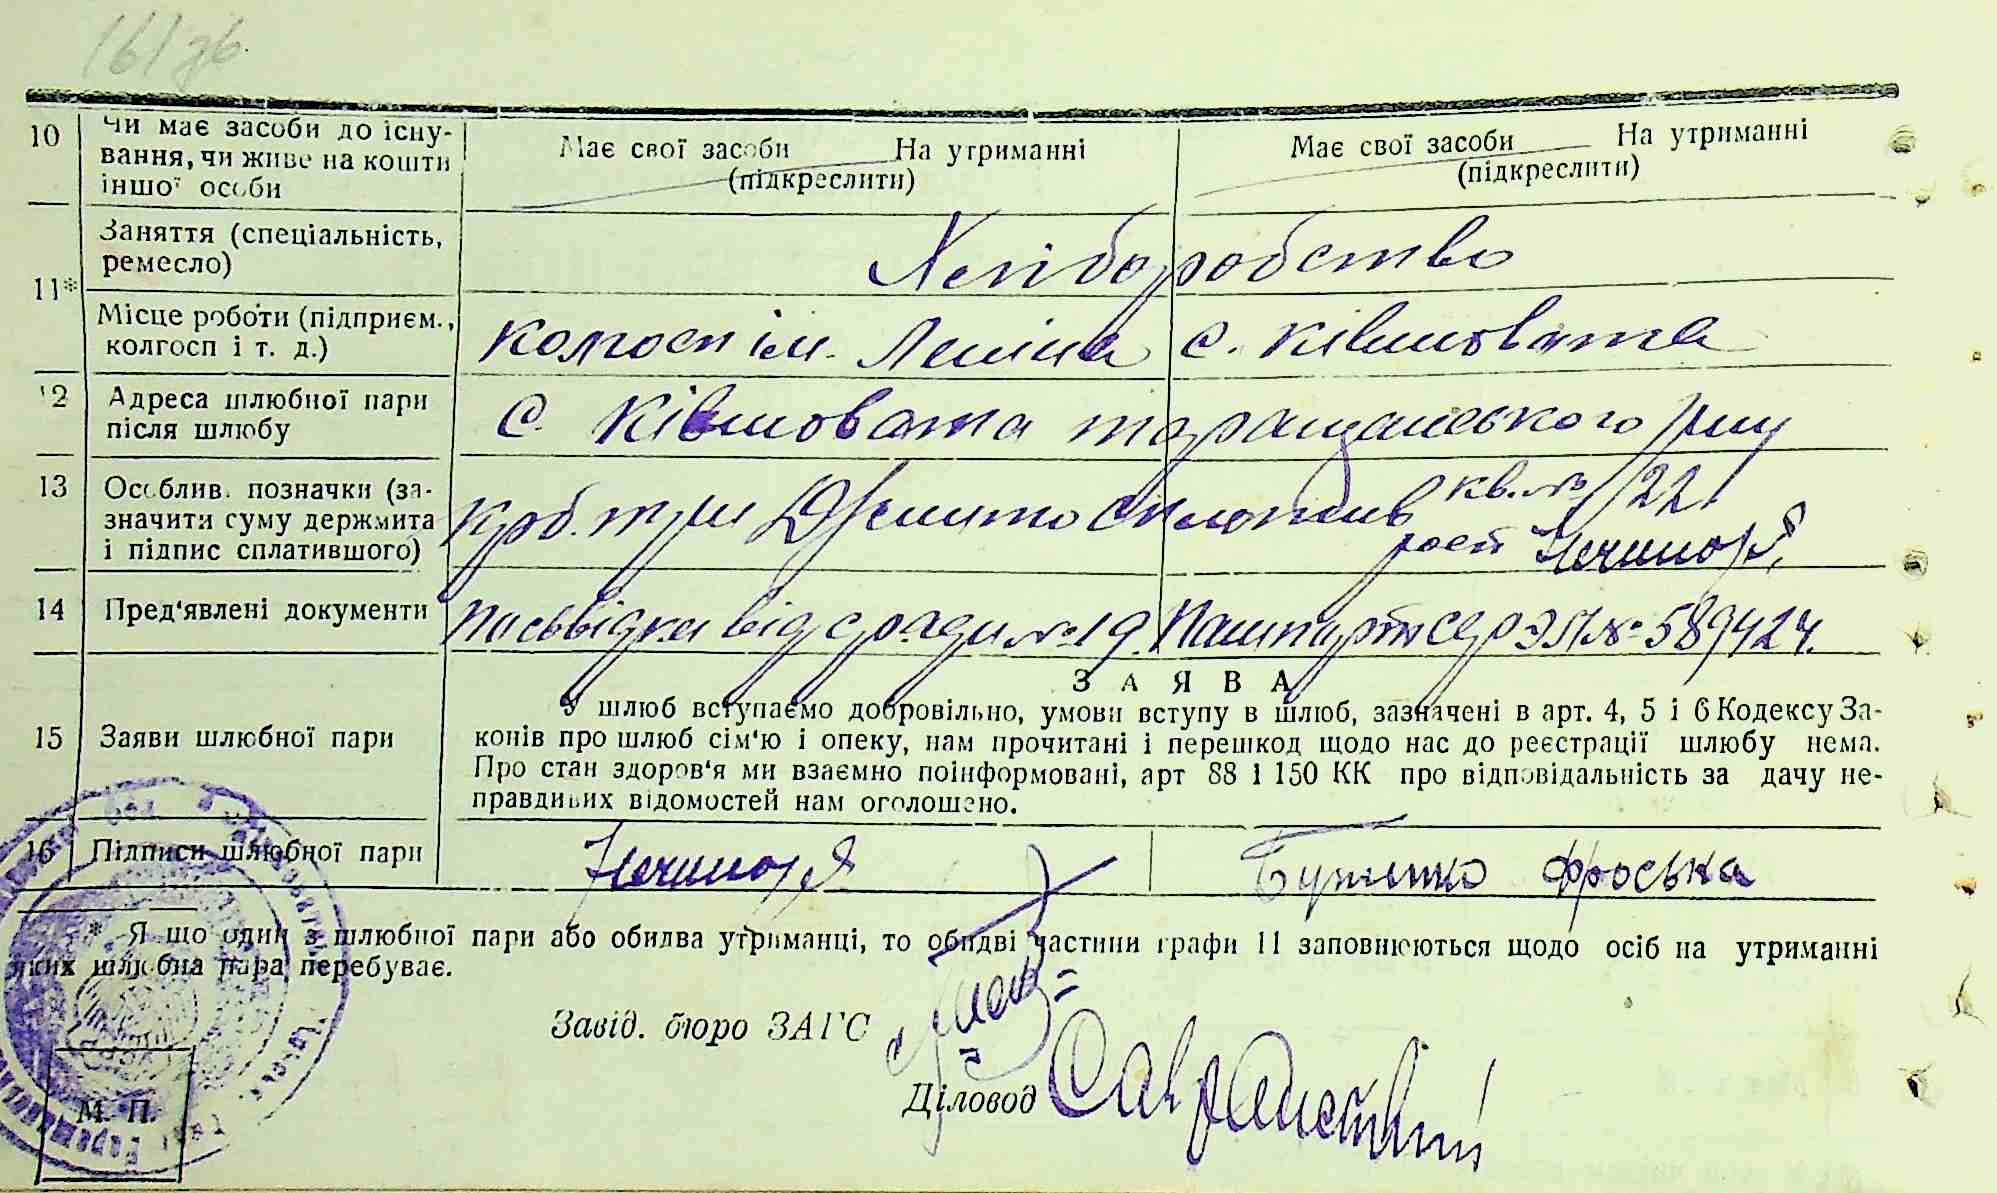 161 зв.
10 Чи має засоби до існу-
вання, чи живе на кошти
іншої особи
Має свої засоби На утриманні
(підкреслити)
Має свої засоби На утриманні
(підкреслити)
11* Заняття (спеціальність,
ремесло)
Хліборобство
Місце роботи (підприєм.,
колгосп і т. д.)
колгосп ім. Леніна с. Ківшовата
12 Адреса шлюбної пари
після шлюбу
с. Ківшовата таращанського р-ну
13 Особлив. позначки (за-
значити суму держмита
і підпис сплатившого)
Крб. три Держмито сплатив кв. № 122
14 Пред'явлені документи
Посьвідка від с/ради № 19. Пашпорт № 589424.
15 Заяви шлюбної пари
ЗАЯВА
У шлюб вступаємо добровільно, умови вступу в шлюб, зазначені в арт. 4, 5 і 6 Кодексу За-
конів про шлюб сім'ю і опеку, нам прочитані і перешкод щодо нас до реєстрації шлюбу нема.
Про стан здоров'я ми взаємно поінформовані, арт 88 і 150 КК про відповідальність за дачу не-
правдивих відомостей нам оголошено.
16 Підписи шлюбної пари
Фроська
* Якщо один з шлюбної пари або обидва утриманці, то обидві частини графи 11 заповнюються щодо осіб на утриманні
яких шлюбна пара перебуває.
Завід. бюро ЗАГС
Діловод
М. П.